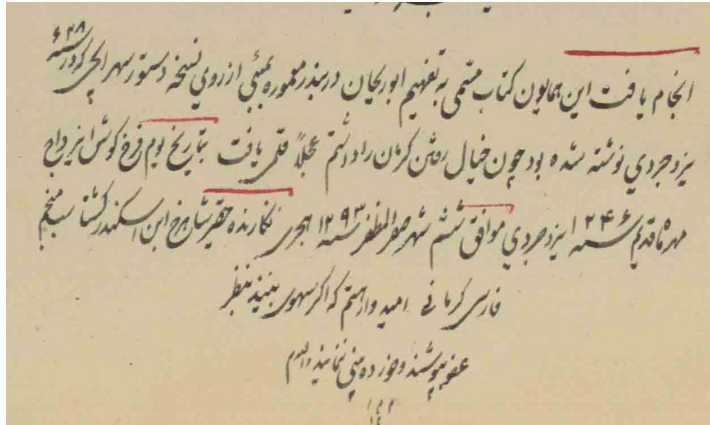 انجام یافت این همایون کتاب مسمی به تفهیم ابوریحان در بندر معموره بمبئی از روی نسخه دستور سهرابجی که در سنه ۶۴۸
یزدجردی نوشته شده بود چون خیال رفتن کرمان را داشتم عجلاً قلمی یافت بتاریخ یوم فرخ گوش ایزد و ماه
مهر ماه قدیم سنه ۱۲۴۶ یزدجردی موافق ششم شهر صفر المظفر سنه ۱۲۹۳ هجری نگارنده حقیر شاهرخ ابن اسکندر گشتاسب منجم
فارسی کرمانی امیدوار هستم که اگر سهوی ببینید بنظر
عفو بپوشند و خورده بینی ننمایند والسلام